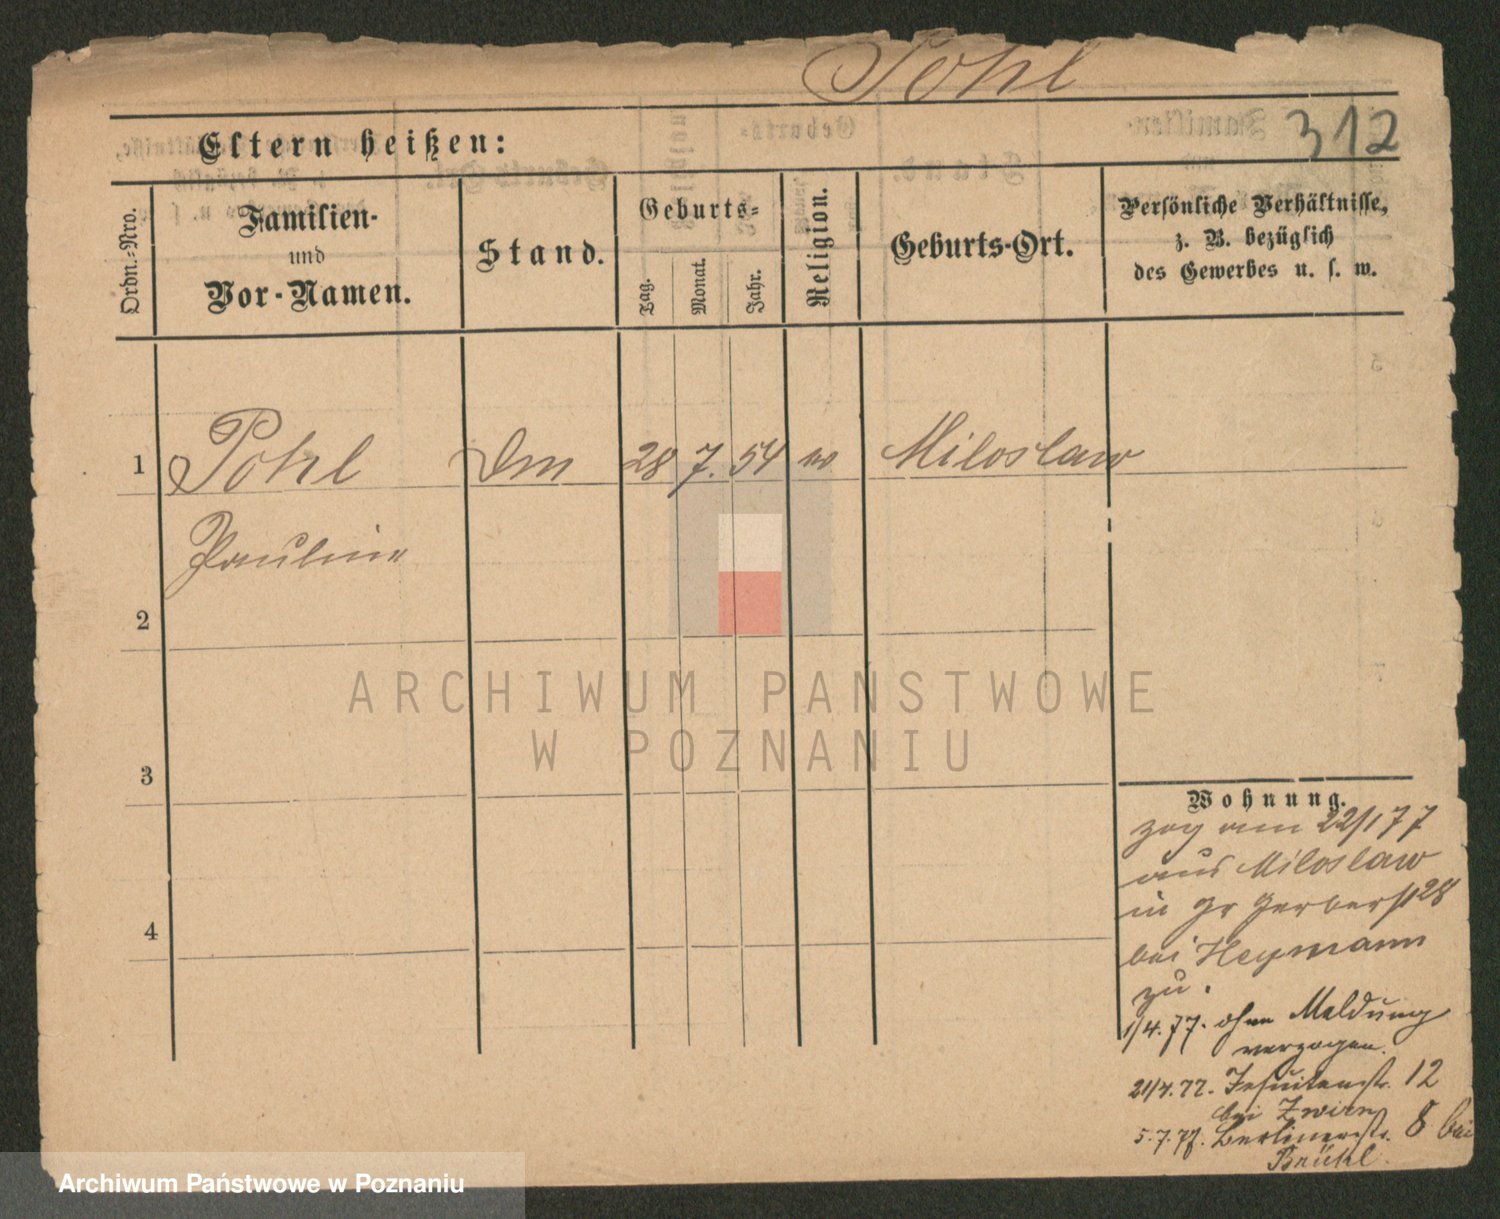 Pohl
312
Eltern heißen:
Ordn.-Nro.
Familien-
und
Vor-Namen.
Stand.
Geburts-
Tag.
Monat.
Jahr.
Religion.
Geburts-Ort.
Persönliche Verhältnisse,
z. B. bezüglich
des Gewerbes u. s. w.
1 Pohl Dm 28 7. 54 Miloslaw
Pauline
2
3
4
Wohnung.
zog am 22/1 77
aus Miloslaw
in Gr Gerberst 28
bei Heymann
zu.
1/4.77. ohne Meldung
verzogen.
21/4.77. Jesuitenstr. 12
bei Zwirn
5.7.77. Berlinerstr. 8 bei
Brühl.
ARCHIWUM PAŃSTWOWE
W POZNANIU
Archiwum Państwowe w Poznaniu